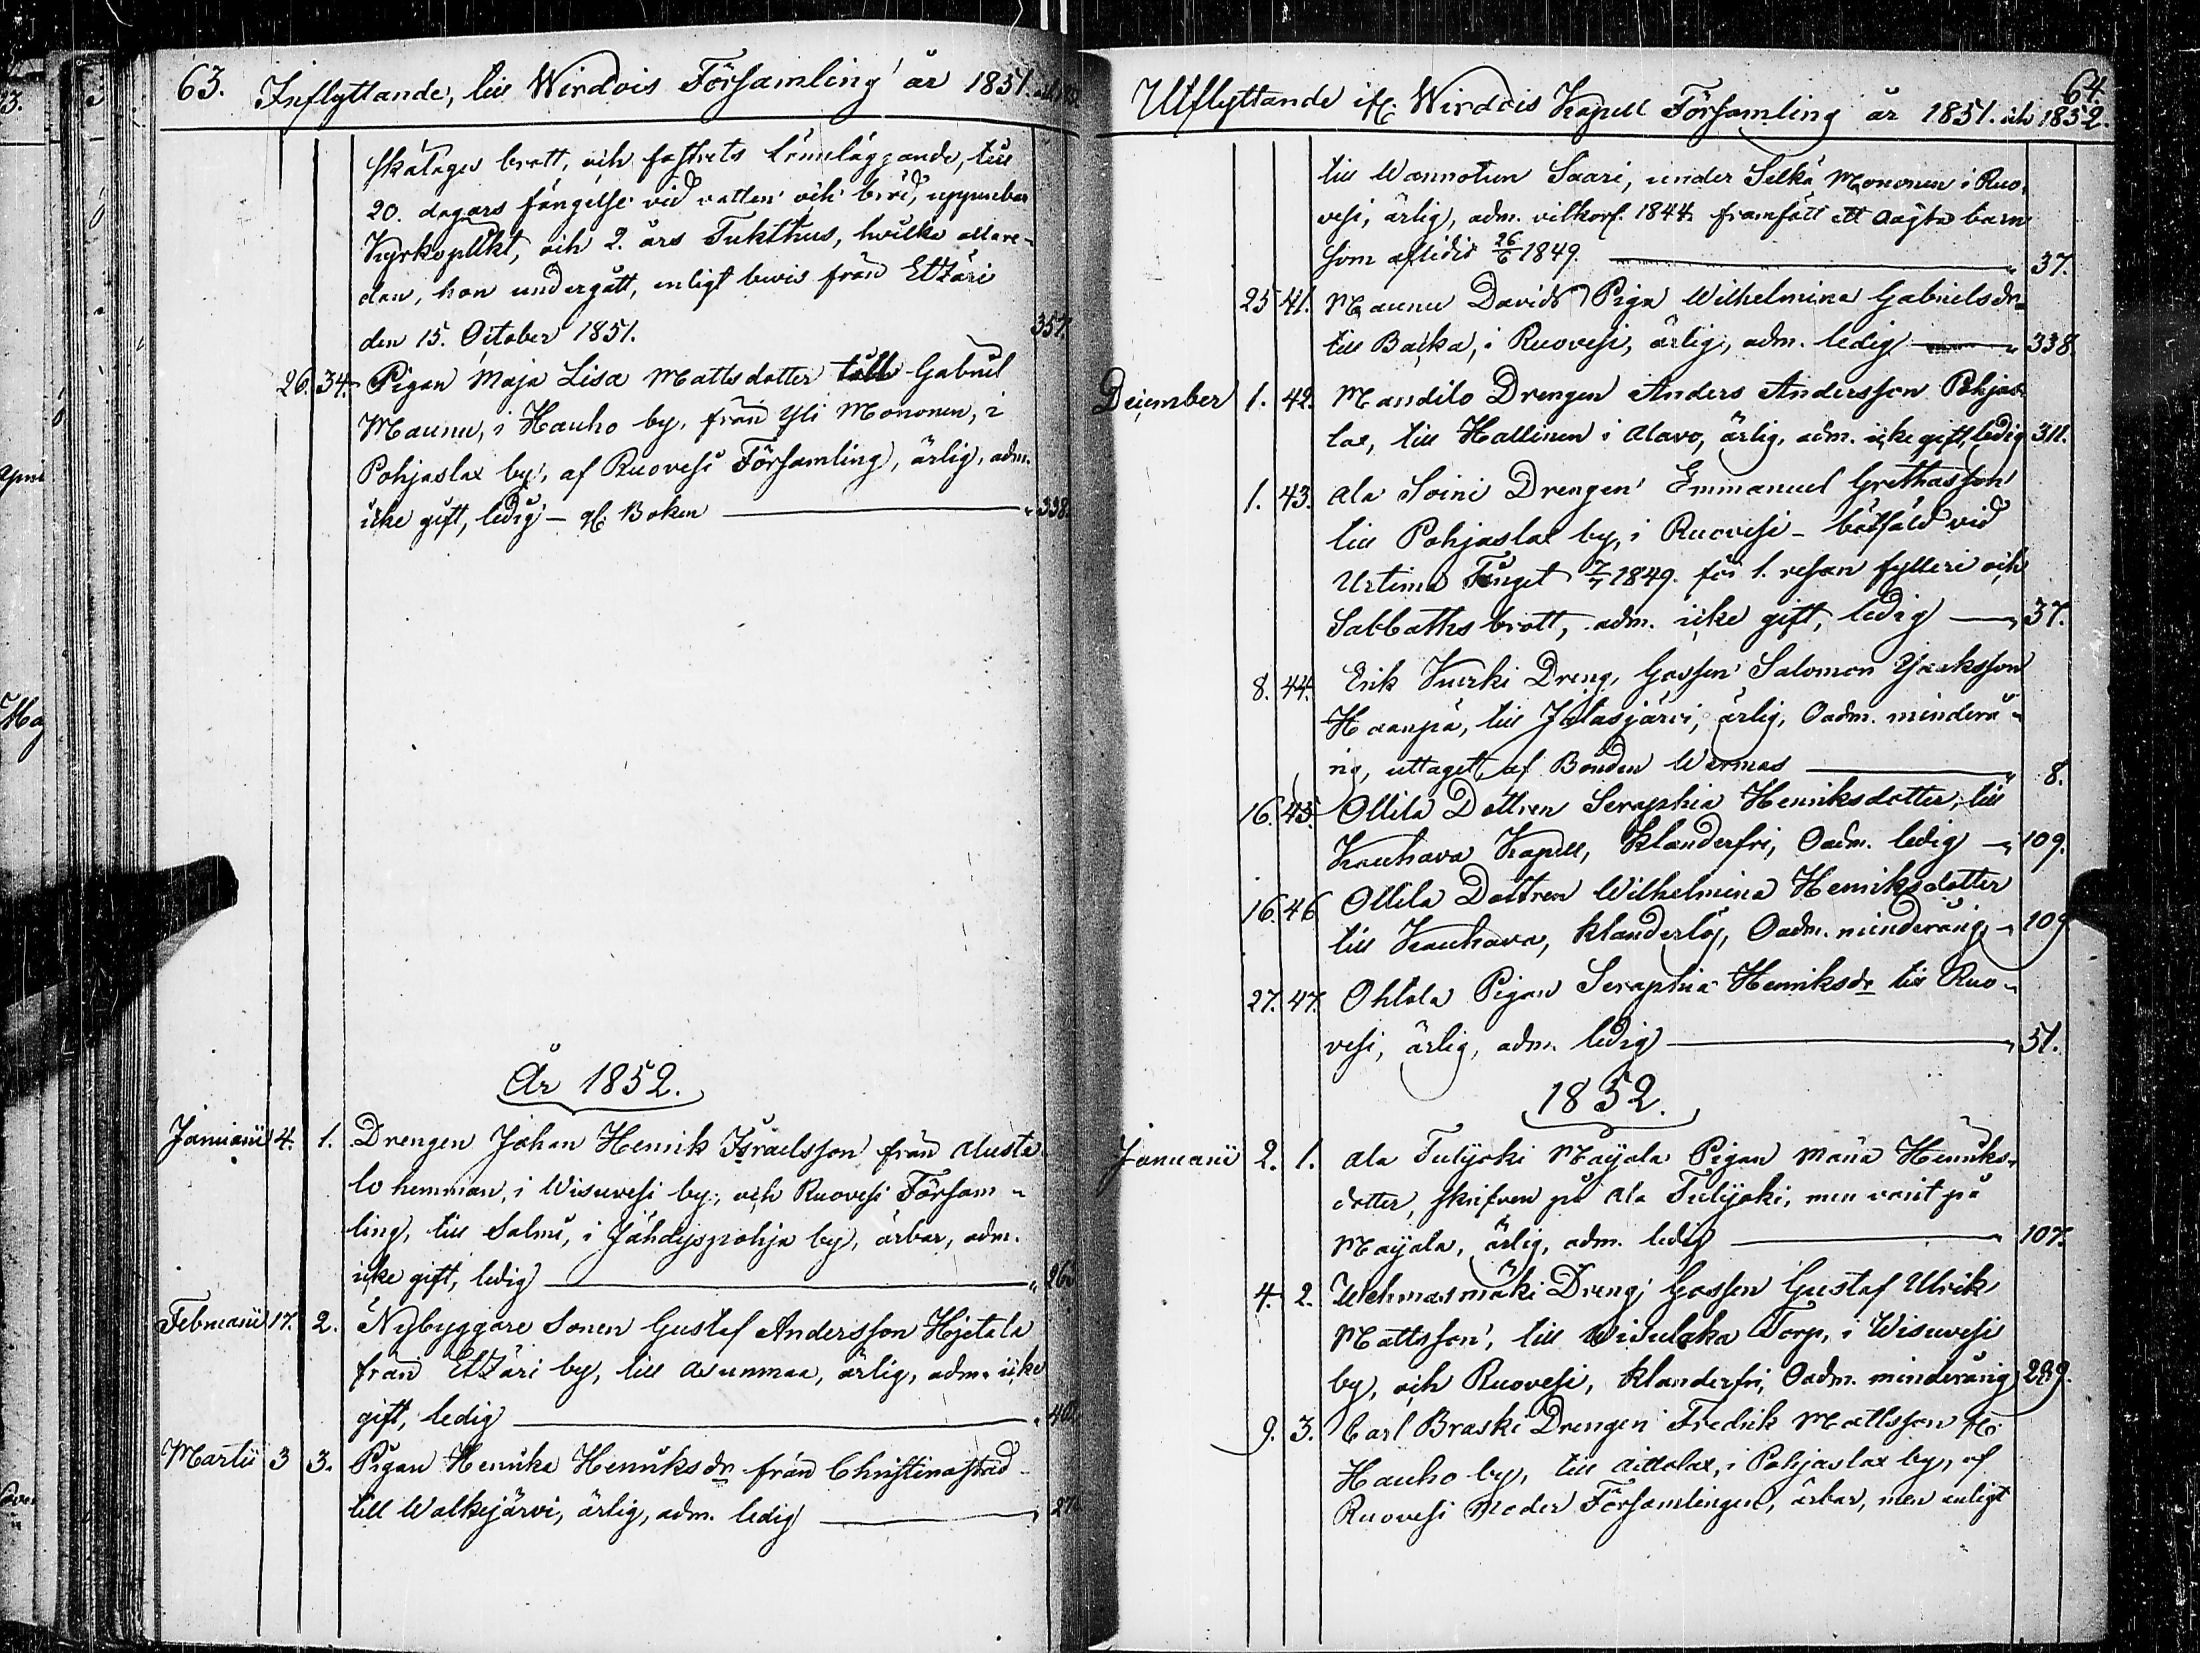 63. Inflyttande, till Wirdois Församling år 1851.
brott, och fostrets lönnläggande, till
20. dagars fängelse vid vatten och bröd, uppenbar
Kyrkoplikt, och 2. års Tukthus, hvilka allare-
dan, hon undergått, enligt bevis från Etzäri
den 15. October 1851. 357.
26. 34. Pigan Maja Lisa Mattsdotter till Gabriel
Maunu, i Hauho by, från Yli Mononen, i
Pohjaslax by, af Ruovesi Församling, ärlig, adm.
icke gift, ledig - Boken 338.
År 1852.
Januarii 4. 1. Drengen Johan Henrik Israelsson från Austa
lo hemman, i Wisuvesi by, och Ruovesi Försam-
ling, till Salmi, i Jähdyspohja by, ärbar, adm.
icke gift, ledig 26.
Februarii 17. 2. Nybyggare Sonen Gustaf Andersson Hjetala
från Etzäri by, till Asunmaa, ärlig, adm. icke
gift, ledig 40.
Martii 3 3. Pigan Henrika Henriksdr från Christinastad
till Walkejärvi, ärlig, adm. ledig
64.
Utflyttande ifr. Wirdois Kapell Församling år 1851. och 1852.
till Wannotun Saari, under Silkä Mononen i Ruo-
vesi, ärlig, adm. vilkorl. 1844. framfödt ett oägta barn
som aflidit 26/6 1849. 37.
25 41. Maunu Davids Piga Wilhelmina Gabrielsdr
till Backa, i Ruovesi, ärlig, adm. ledig 338.
December 1. 42. Mandilo Drengen Anders Andersson Pohjas-
lax, till Hallinen i Alavo, ärlig, adm. icke gift, ledig 311.
1. 43. Ala Soini Drengen Emmanuel Grethasson
till Pohjaslax by, i Ruovesi - botfäld vid
Urtima Tinget 7/7 1849. för 1. resan fylleri och
Sabbaths brott, adm. icke gift, ledig 37.
8. 44. Erik Kurki Dreng, Gossen Salomon Isaksson
Haanpä, till Jalasjärvi, ärlig, Oadm. minderå-
rig, uttaget af Bonden Warmas 8.
16. 45. Ollila Dottren Seraphia Henriksdotter, till
Kauhava Kapell, klanderfri, Oadm. ledig 109.
16. 46. Ollila Dottren Wilhelmina Henriksdotter
till Kauhava, klanderlös, Oadm. minderårig 109
27. 47. Ohtola Pigan Seraphia Henriksdr till Ruo-
vesi, ärlig, adm. ledig 51.
1852.
Januarii 2. 1. Ala Tulijoki Mayala Pigan Maria Henriks-
dotter, skrifven på Ala Tulijoki, men varit på
Mayala, ärlig, adm. ledig 107.
4. 2. Uehmasmäki Dreng, Gossen Gustaf Ulrik
Mattsson, till Torp, i Wisuvesi
by, och Ruovesi, klanderfri, Oadm. minderårig 299.
9. 3. Carl Braski Drengen Fredrik Mattsson
Hauho by, till Aittolax, i Pohjaslax by, af
Ruovesi Moder Församlingen, ärbar, men enligt